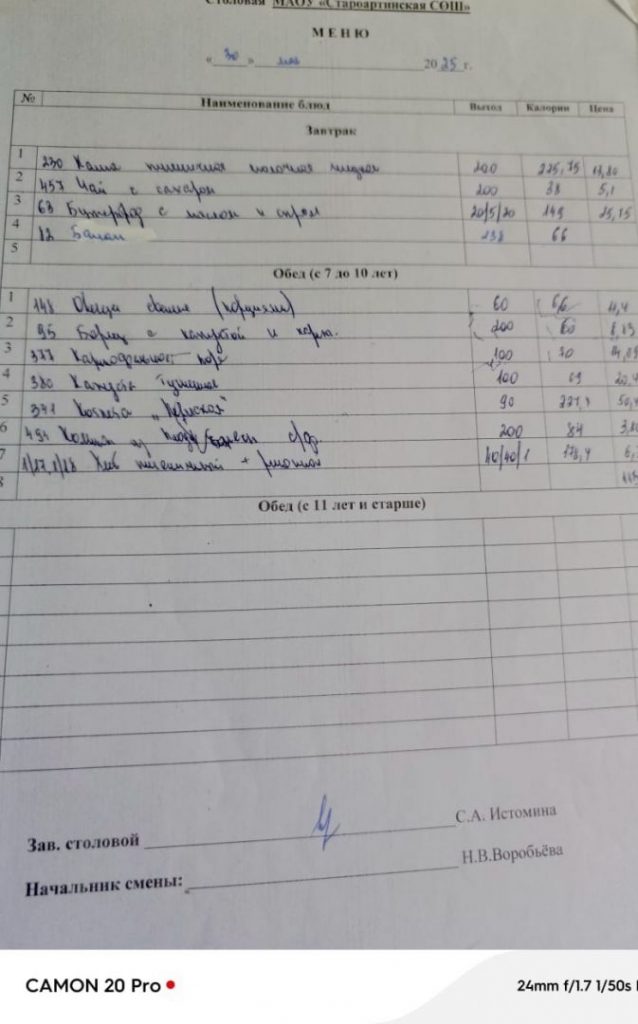 Столовая МАОУ «Староартинская СОШ»
МЕНЮ
« 30 » мая 2025 г.
№ Наименование блюд Выход Калории Цена
Завтрак
1 230 Каша пшеничная молочная жидкая 200 225,75
2 457 Чай с сахаром 200 38 5,1
3 63 Бутерброд с маслом и сыром 20/5/20 149 25,15
4 12 Банан 66
5
Обед (с 7 до 10 лет)
1 148 Овощи свежие (порциями) 60 66
2 95 Борщ с капустой и 200 60
3 377 Картофельное пюре 100
4 380 Капуста тушеная 100
5 Котлета 90
6 494 Компот из 200 84
7 1/17, 1/18 Хлеб пшеничный + ржаной 40/40/1 178,4
8
Обед (с 11 лет и старше)
Зав. столовой С.А. Истомина
Начальник смены: Н.В.Воробьёва
CAMON 20 Pro 24mm f/1.7 1/50s